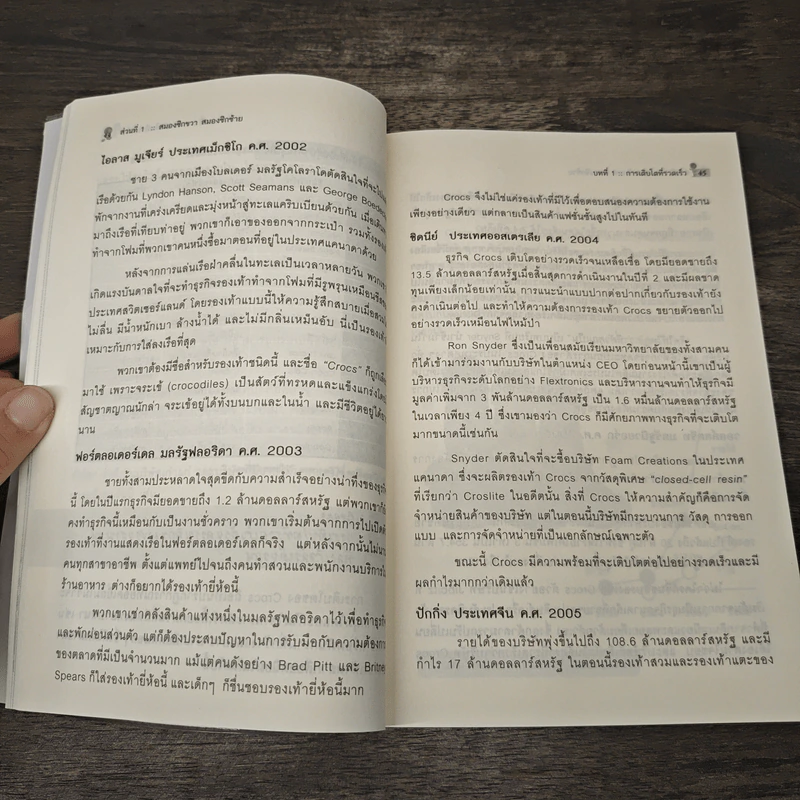 ส่วนที่ 1 :: สมองซีกขวา สมองซีกซ้าย
ไอลาส มูเจียร์ ประเทศเม็กซิโก ค.ศ. 2002
ชาย 3 คนจากเมืองโบลเดอร์ มลรัฐโคโลราโดตัดสินใจที่จะไป
เรือด้วยกัน Lyndon Hanson, Scott Seamans และ George Boedecker
พักจากงานที่เคร่งเครียดและมุ่งหน้าสู่ทะเลแคริบเบียนด้วยกัน เมื่อ
มาถึงเรือที่เทียบท่าอยู่ พวกเขาก็เอาของออกจากกระเป๋า รวมทั้งรอง
ทำจากโฟมที่พวกเขาคนหนึ่งซื้อมาตอนที่อยู่ในประเทศแคนาดาด้วย
หลังจากการแล่นเรือฝ่าคลื่นในทะเลเป็นเวลาหลายวัน พวก
เกิดแรงบันดาลใจที่จะทำธุรกิจรองเท้าทำจากโฟมที่มีรูพรุนเหมือน
ประเทศสวิตเซอร์แลนด์ โดยรองเท้าแบบนี้ให้ความรู้สึกสบายเมื่อสวม
ไม่ลื่น มีน้ำหนักเบา ล้างน้ำได้ และไม่มีกลิ่นเหม็นอับ นี่เป็นรองเท้า
เหมาะกับการใส่ลงเรือที่สุด
พวกเขาต้องมีชื่อสำหรับรองเท้าชนิดนี้ และชื่อ “Crocs” ก็ถูก
มาใช้ เพราะจระเข้ (crocodiles) เป็นสัตว์ที่ทรหดและแข็งแกร่งโดย
สัญชาตญาณนักล่า จระเข้อยู่ได้ทั้งบนบกและในน้ำ และมีชีวิตอยู่ได้
นาน
ฟอร์ตลอเดอร์เดล มลรัฐฟลอริดา ค.ศ. 2003
ชายทั้งสามประหลาดใจสุดขีดกับความสำเร็จอย่างน่าทึ่งของธุรกิจ
นี้ โดยในปีแรกธุรกิจมียอดขายถึง 1.2 ล้านดอลลาร์สหรัฐ แต่พวกเขาก็
คงทำธุรกิจนี้เหมือนกับเป็นงานชั่วคราว พวกเขาเริ่มต้นจากการไปเปิดตัว
รองเท้าที่งานแสดงเรือในฟอร์ตลอเดอร์เดลก็จริง แต่หลังจากนั้นไม่นาน
คนทุกสาขาอาชีพ ตั้งแต่แพทย์ไปจนถึงคนทำสวนและพนักงานบริการใน
ร้านอาหาร ต่างก็อยากได้รองเท้ายี่ห้อนี้
พวกเขาเช่าคลังสินค้าแห่งหนึ่งในมลรัฐฟลอริดาไว้เพื่อทำธุรกิจ
และพักผ่อนส่วนตัว แต่ก็ต้องประสบปัญหาในการรับมือกับความต้องการ
ของตลาดที่มีเป็นจำนวนมาก แม้แต่คนดังอย่าง Brad Pitt และ Britney
Spears ก็ใส่รองเท้ายี่ห้อนี้ และเด็กๆ ก็ชื่นชอบรองเท้ายี่ห้อนี้มาก
บทที่ 1 :: การเติบโตที่รวดเร็ว 45
Crocs จึงไม่ใช่แค่รองเท้าที่มีไว้เพื่อตอบสนองความต้องการใช้งาน
เพียงอย่างเดียว แต่กลายเป็นสินค้าแฟชั่นชั้นสูงไปในทันที
ซิดนีย์ ประเทศออสเตรเลีย ค.ศ. 2004
ธุรกิจ Crocs เติบโตอย่างรวดเร็วจนเหลือเชื่อ โดยมียอดขายถึง
13.5 ล้านดอลลาร์สหรัฐเมื่อสิ้นสุดการดำเนินงานในปีที่ 2 และมีผลขาด
ทุนเพียงเล็กน้อยเท่านั้น การแนะนำแบบปากต่อปากเกี่ยวกับรองเท้ายัง
คงดำเนินต่อไป และทำให้ความต้องการรองเท้า Crocs ขยายตัวออกไป
อย่างรวดเร็วเหมือนไฟไหม้ป่า
Ron Snyder ซึ่งเป็นเพื่อนสมัยเรียนมหาวิทยาลัยของทั้งสามคน
ก็ได้เข้ามาร่วมงานกับบริษัทในตำแหน่ง CEO โดยก่อนหน้านี้เขาเป็นผู้
บริหารธุรกิจระดับโลกอย่าง Flextronics และบริหารงานจนทำให้ธุรกิจมี
มูลค่าเพิ่มจาก 3 พันล้านดอลลาร์สหรัฐ เป็น 1.6 หมื่นล้านดอลลาร์สหรัฐ
ในเวลาเพียง 4 ปี ซึ่งเขามองว่า Crocs ก็มีศักยภาพทางธุรกิจที่จะเติบโต
มากขนาดนี้เช่นกัน
Snyder ตัดสินใจที่จะซื้อบริษัท Foam Creations ในประเทศ
แคนาดา ซึ่งจะผลิตรองเท้า Crocs จากวัสดุพิเศษ “closed-cell resin”
ที่เรียกว่า Croslite ในอดีตนั้น สิ่งที่ Crocs ให้ความสำคัญก็คือการจัด
จำหน่ายสินค้าของบริษัท แต่ในตอนนี้บริษัทมีกระบวนการ วัสดุ การออก
แบบ และการจัดจำหน่ายที่เป็นเอกลักษณ์เฉพาะตัว
ขณะนี้ Crocs มีความพร้อมที่จะเติบโตต่อไปอย่างรวดเร็วและมี
ผลกำไรมากกว่าเดิมแล้ว
ปักกิ่ง ประเทศจีน ค.ศ. 2005
รายได้ของบริษัทพุ่งขึ้นไปถึง 108.6 ล้านดอลลาร์สหรัฐ และมี
กำไร 17 ล้านดอลลาร์สหรัฐ ในตอนนี้รองเท้าสวมและรองเท้าแตะของ